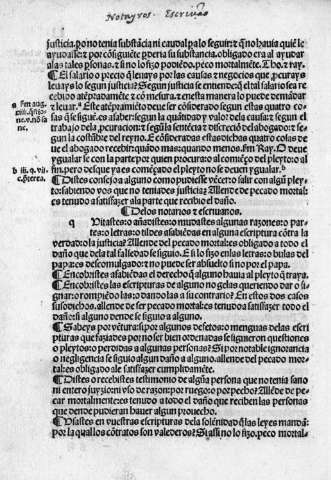 Notayros. Escriuãos
justicia. por no tenia substãcia ni caudal pa lo seguir: τ q̃ no hauia quiẽ le
ayudasse: τ por cõsiguẽte p̃deria su substancia. obligado era al ayudar
a las tales p̃sonas. τ si no fizo podiẽdo. peco mortalmẽte. Tho. τ ray.
¶ El salario o precio q̃ leuays por las causas τ negocios que p̃curays
leuays lo segun justicia? Segun justicia se entiende q̃ el tal salario sea re
cebido atẽpradamẽte τ cõ mesura: τ desta manera lo puede demãdar
τ leuar. Este atẽpramiẽto deue ser cõsiderado segun estas quatro co-
sas q̃ se sigue. es a saber: segun la quantidad y valor dela causa: τ segun el
trabajo dela p̃curacion: τ segũ la sciẽcia τ discreciõ del abogado: τ se-
gun la costũbre del reyno. E cõsideradas estas dichas quatro cosas de
ue el abogado recebir: quãdo mas: quando menos. fm Ray. O deue
ygualar se con la parte por quien procura: o al comieço del pleyto: o al
fin. pero desque ya es començado el pleyto no se deuen ygualar. b
¶ Distes consejo a alguno como pudiesse vẽcer o salir con algũ pley-
to: sabiendo vos que no tenia de justicia? Allende de pecado mortal:
es tenudo a satisfazer ala parte que recibio el daño.
fm aug.
b iii. q. vii.
¶ Delos notarios τ escriuanos.
q
Uitastes: o añadistes: o mudastes algunas razones: o par-
tes: o letras: o tildes a sabiẽdas en alguna escriptura cõtra la
verdad: o la justicia? Allende del pecado mortal es obligado a todo el
daño que dela tal falsedad se sigue. E si lo fizo en las letras: o bulas del
papa: es descomulgado: τ no puede ser absuelto si no por el papa.
¶ Encobristes a sabiẽdas el derecho q̃ alguno hauia al pleyto q̃ traya.
¶ Encobristes las escripturas de alguno no gelas queriendo dar o si-
gnar: o rompiẽdo las: o dando las a su contrario? En estos dos casos
susodichos. allende de ser pecado mortal: es tenudo a satisfazer todo el
daño: si a alguno dende se siguio a alguno.
¶ Sabeys por vẽtura: si por algunos defetos: o menguas delas escri
pturas que faziades por no ser bien ordenadas se siguieron questiones
o pleytos: o perdidas a algunas personas? Si por notable ignorancia
o negligencia se siguio algun daño a alguno. allende del pecado mor-
tal es obligado a le satisfazer cumplidamẽte.
¶ Distes o recebistes testimonio de algũa persona que no tenia sano
ni entero juyzio ni vso de razon: por ruego: o por pecho? Allẽde de pe-
car mortalmente: es tenudo a todo el daño que reciben las personas
que dende pudieran hauer algun prouecho.
¶ Usastes en vuestras escripturas dela solẽnidad q̃ las leyes manda:
por la qual los cõtratos son valederos? Si assi no lo fizo. peco mortal-